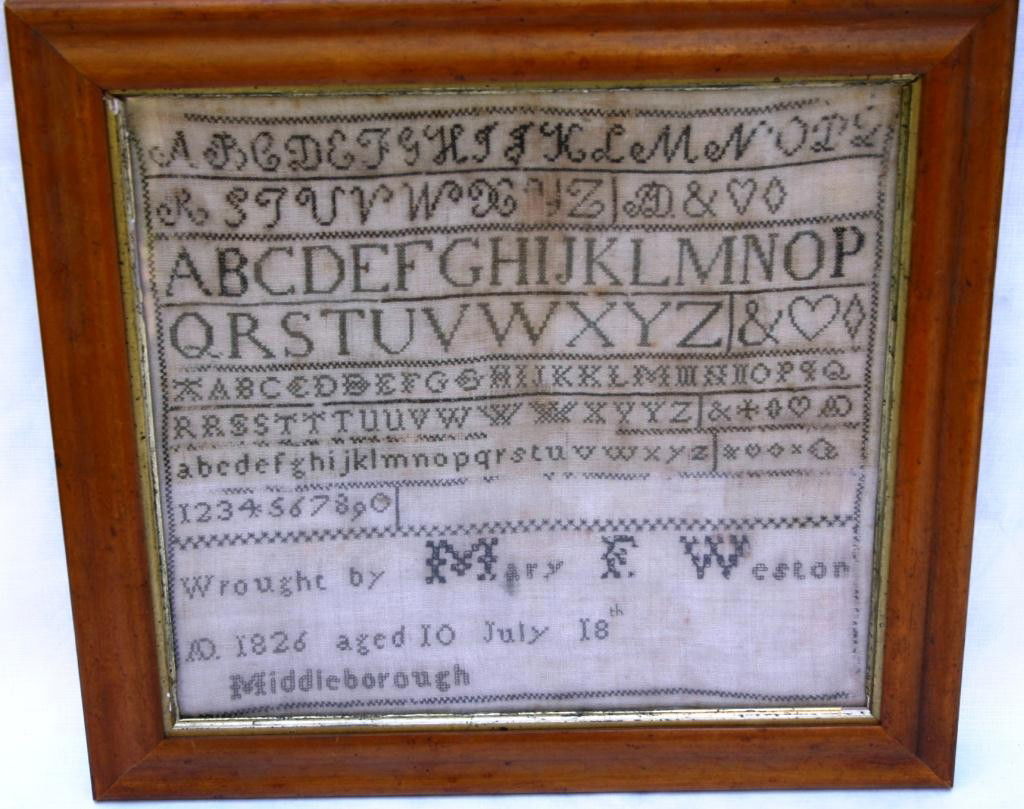 A B C D E F G H I J K L M N O P Q
R S T U V W X Y Z | AD. & ♡ ◊
A B C D E F G H I J K L M N O P
Q R S T U V W X Y Z | & ♡ ◊
A B C C D D E F G G H I I K K L M N O P Q
R R S S T T T U U V W W W X Y Y Z | & ♡ AD
a b c d e f g h i j k l m n o p q r s t u v w x y z |
1 2 3 4 5 6 7 8 9 0 |
Wrought by Mary F. Weston
AD. 1826 aged 10 July 18th
Middleborough